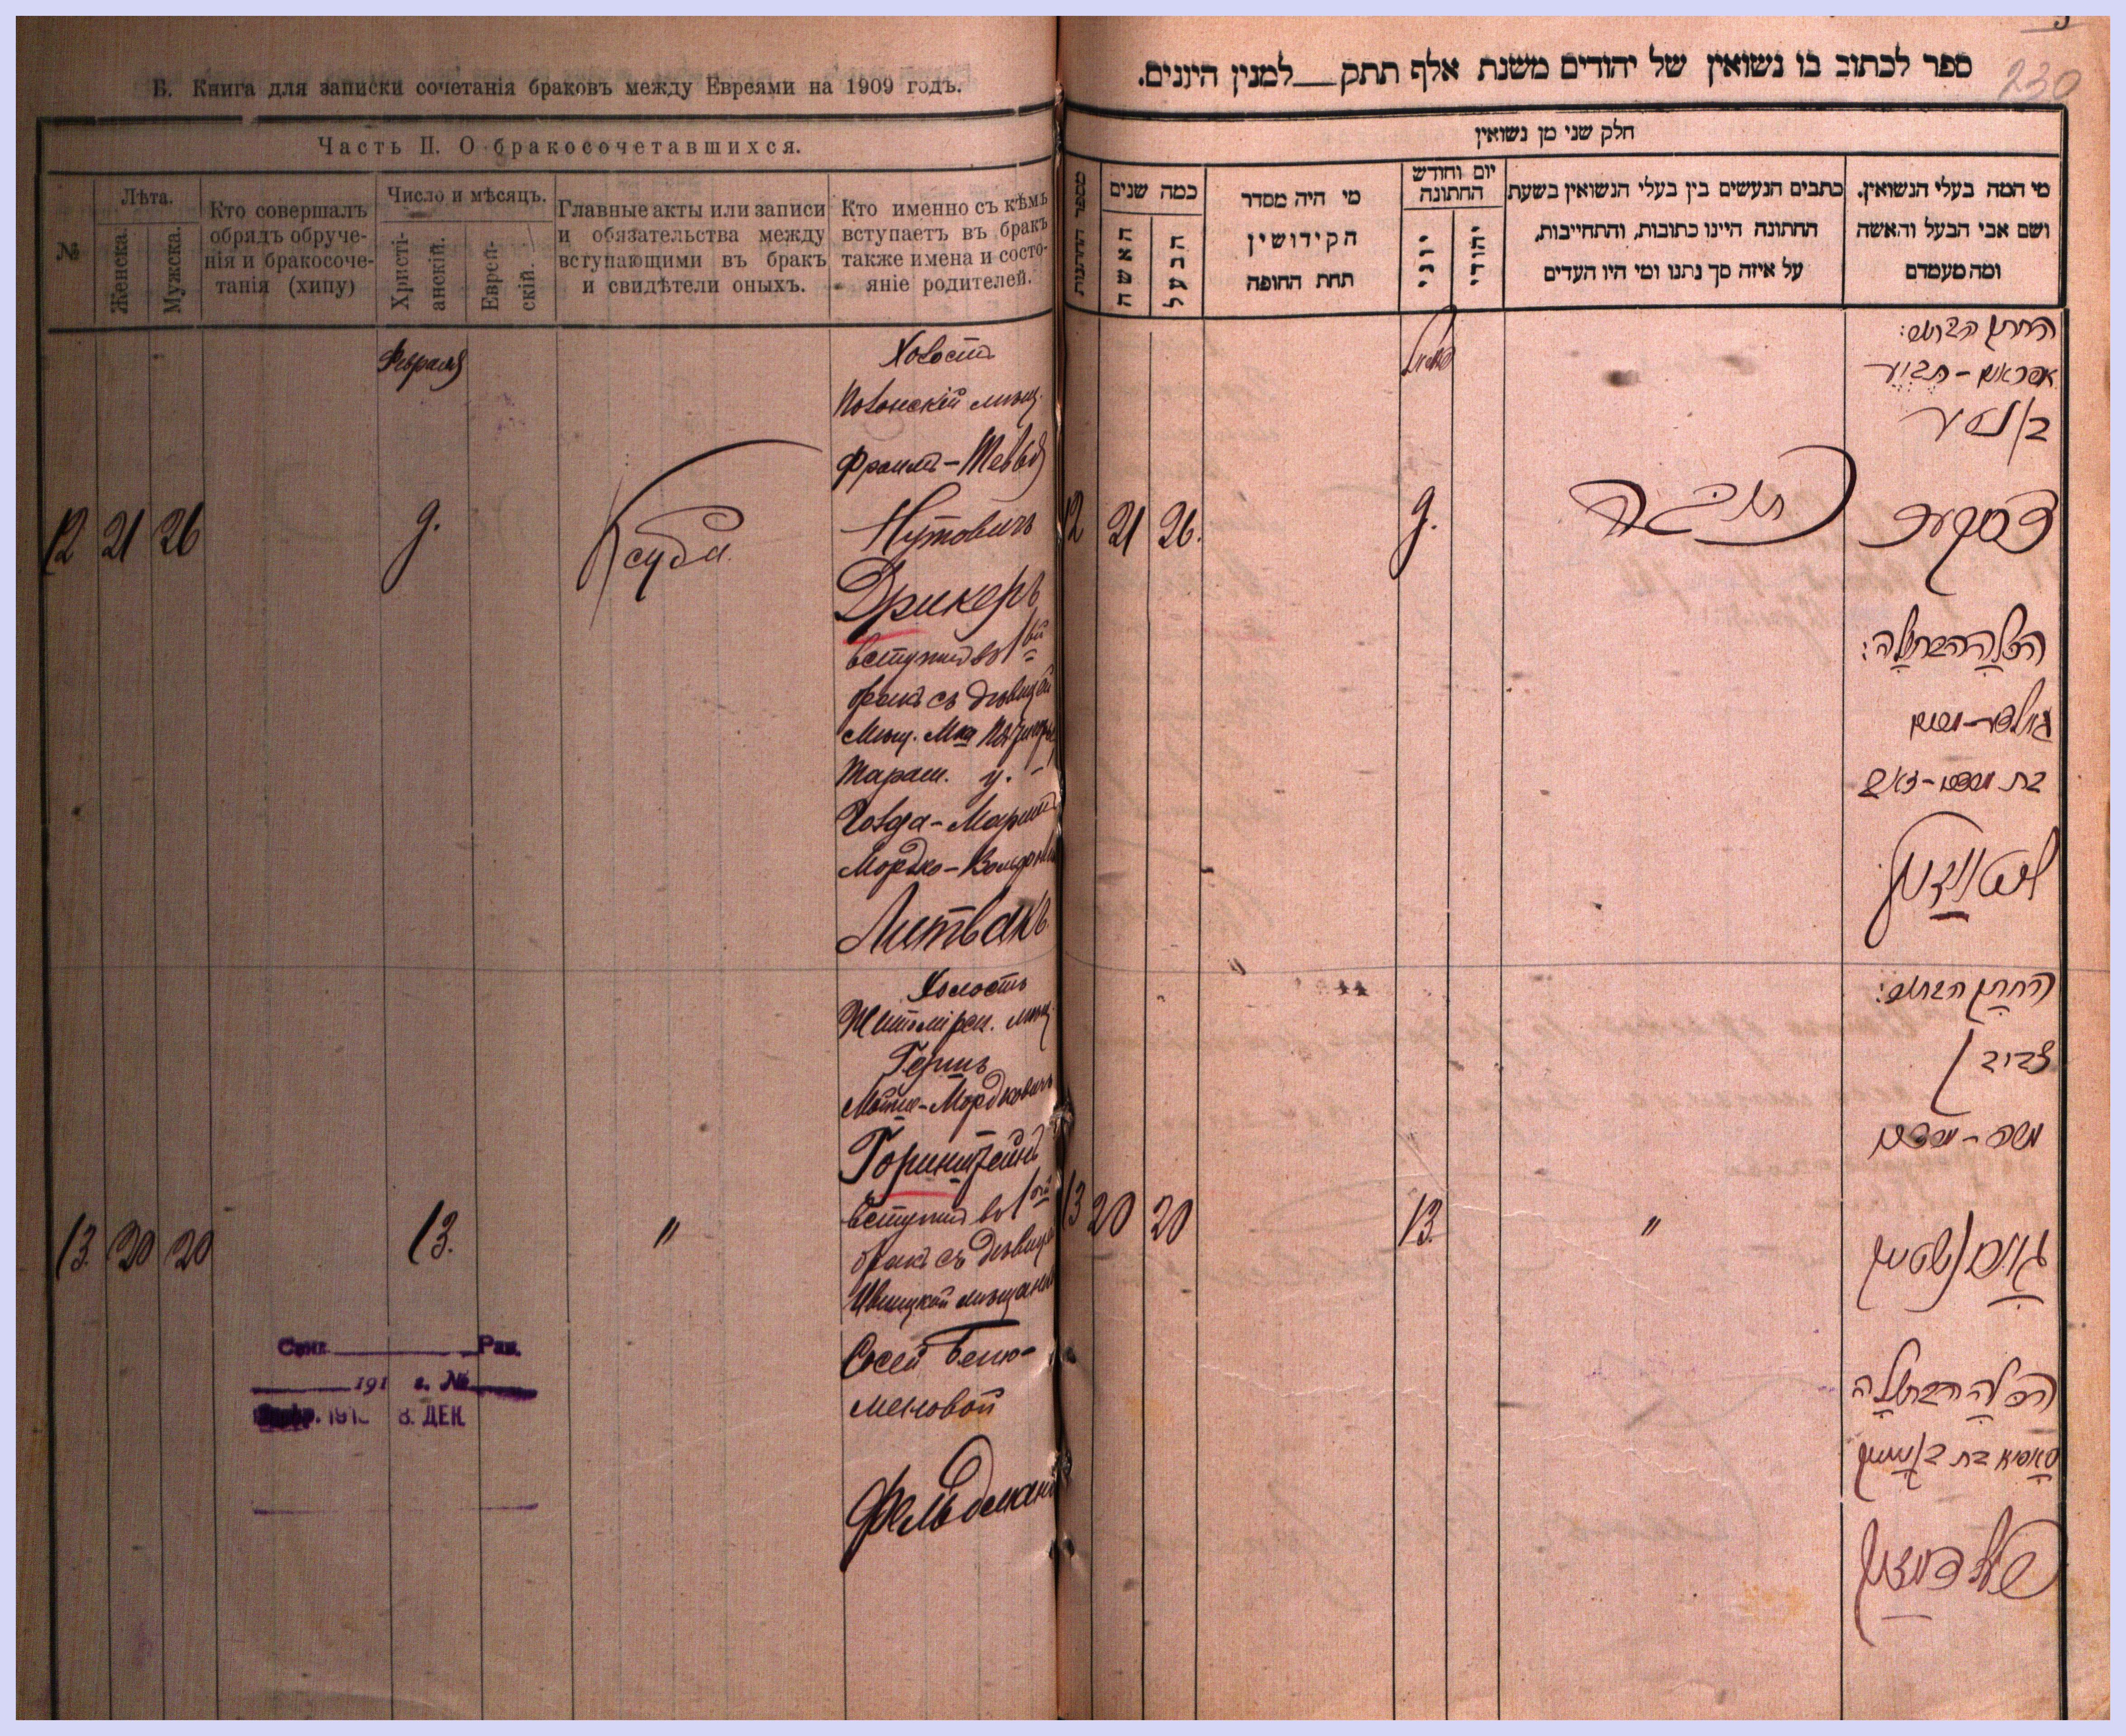 Б. Книга для записки сочетанія браковъ между Евреями на 1909 годъ.
Часть II. О бракосочетавшихся.
№
Лѣта.
Женска.
Мужска.
Кто совершалъ
обрядъ обруче-
нія и бракосоче-
танія (хипу)
Число и мѣсяцъ.
Христі-
анскій.
Еврей-
скій.
Главные акты или записи
и обязательства между
вступающими въ бракъ
и свидѣтели оныхъ.
Кто именно съ кѣмъ
вступаетъ въ бракъ
также имена и состо-
яніе родителей.
12
21
26
Февраля
9.
Ксуба.
Холостъ
Полонскій мѣщ.
Фроимъ-Тевья
Нутовичъ
Дрикеръ
вступил въ 1ый
бракъ съ дѣвицей
Таращ. у.
Голда-
Мордко-
Литвакъ
13.
20
20
13.
"
Холостъ
Житомірск. мѣщ.
Гершъ
Мошко-Мордковичъ
Горинштейнъ
вступил въ 1ой
бракъ съ дѣвицей
Ивницкой мѣщанкой
Сосей Беню-
меновой
Фельдманъ
Рав.
191 г. №
8. ДЕК
230
ספר לכתוב בו נשואין של יהודים משנת אלף תתק__למנין היונים.
חלק שני מן נשואין
מספר החתונות
כמה שנים
האשה
הבעל
מי היה מסדר
הקידושין
תחת החופה
יום וחודש
החתונה
יוני
יהודי
כתבים הנעשים בין בעלי הנשואין בשעת
החתונה היינו כתובות, והתחייבות,
על איזה סך נתנו ומי היו העדים
מי המה בעלי הנשואין.
ושם אבי הבעל והאשה
ומה מעמדם
12
21
26.
9.
כתובה
החתן הבחור:
דרוקער
הכלה הבתולה:
בת מרדכי-זאב
ליטוואק
13
20
20
13.
"
החתן הבחור:
צבי בן
משה-מרדכי
גורינשטיין
הכלה הבתולה
סאסיא בת בנימין
פעלדמאן